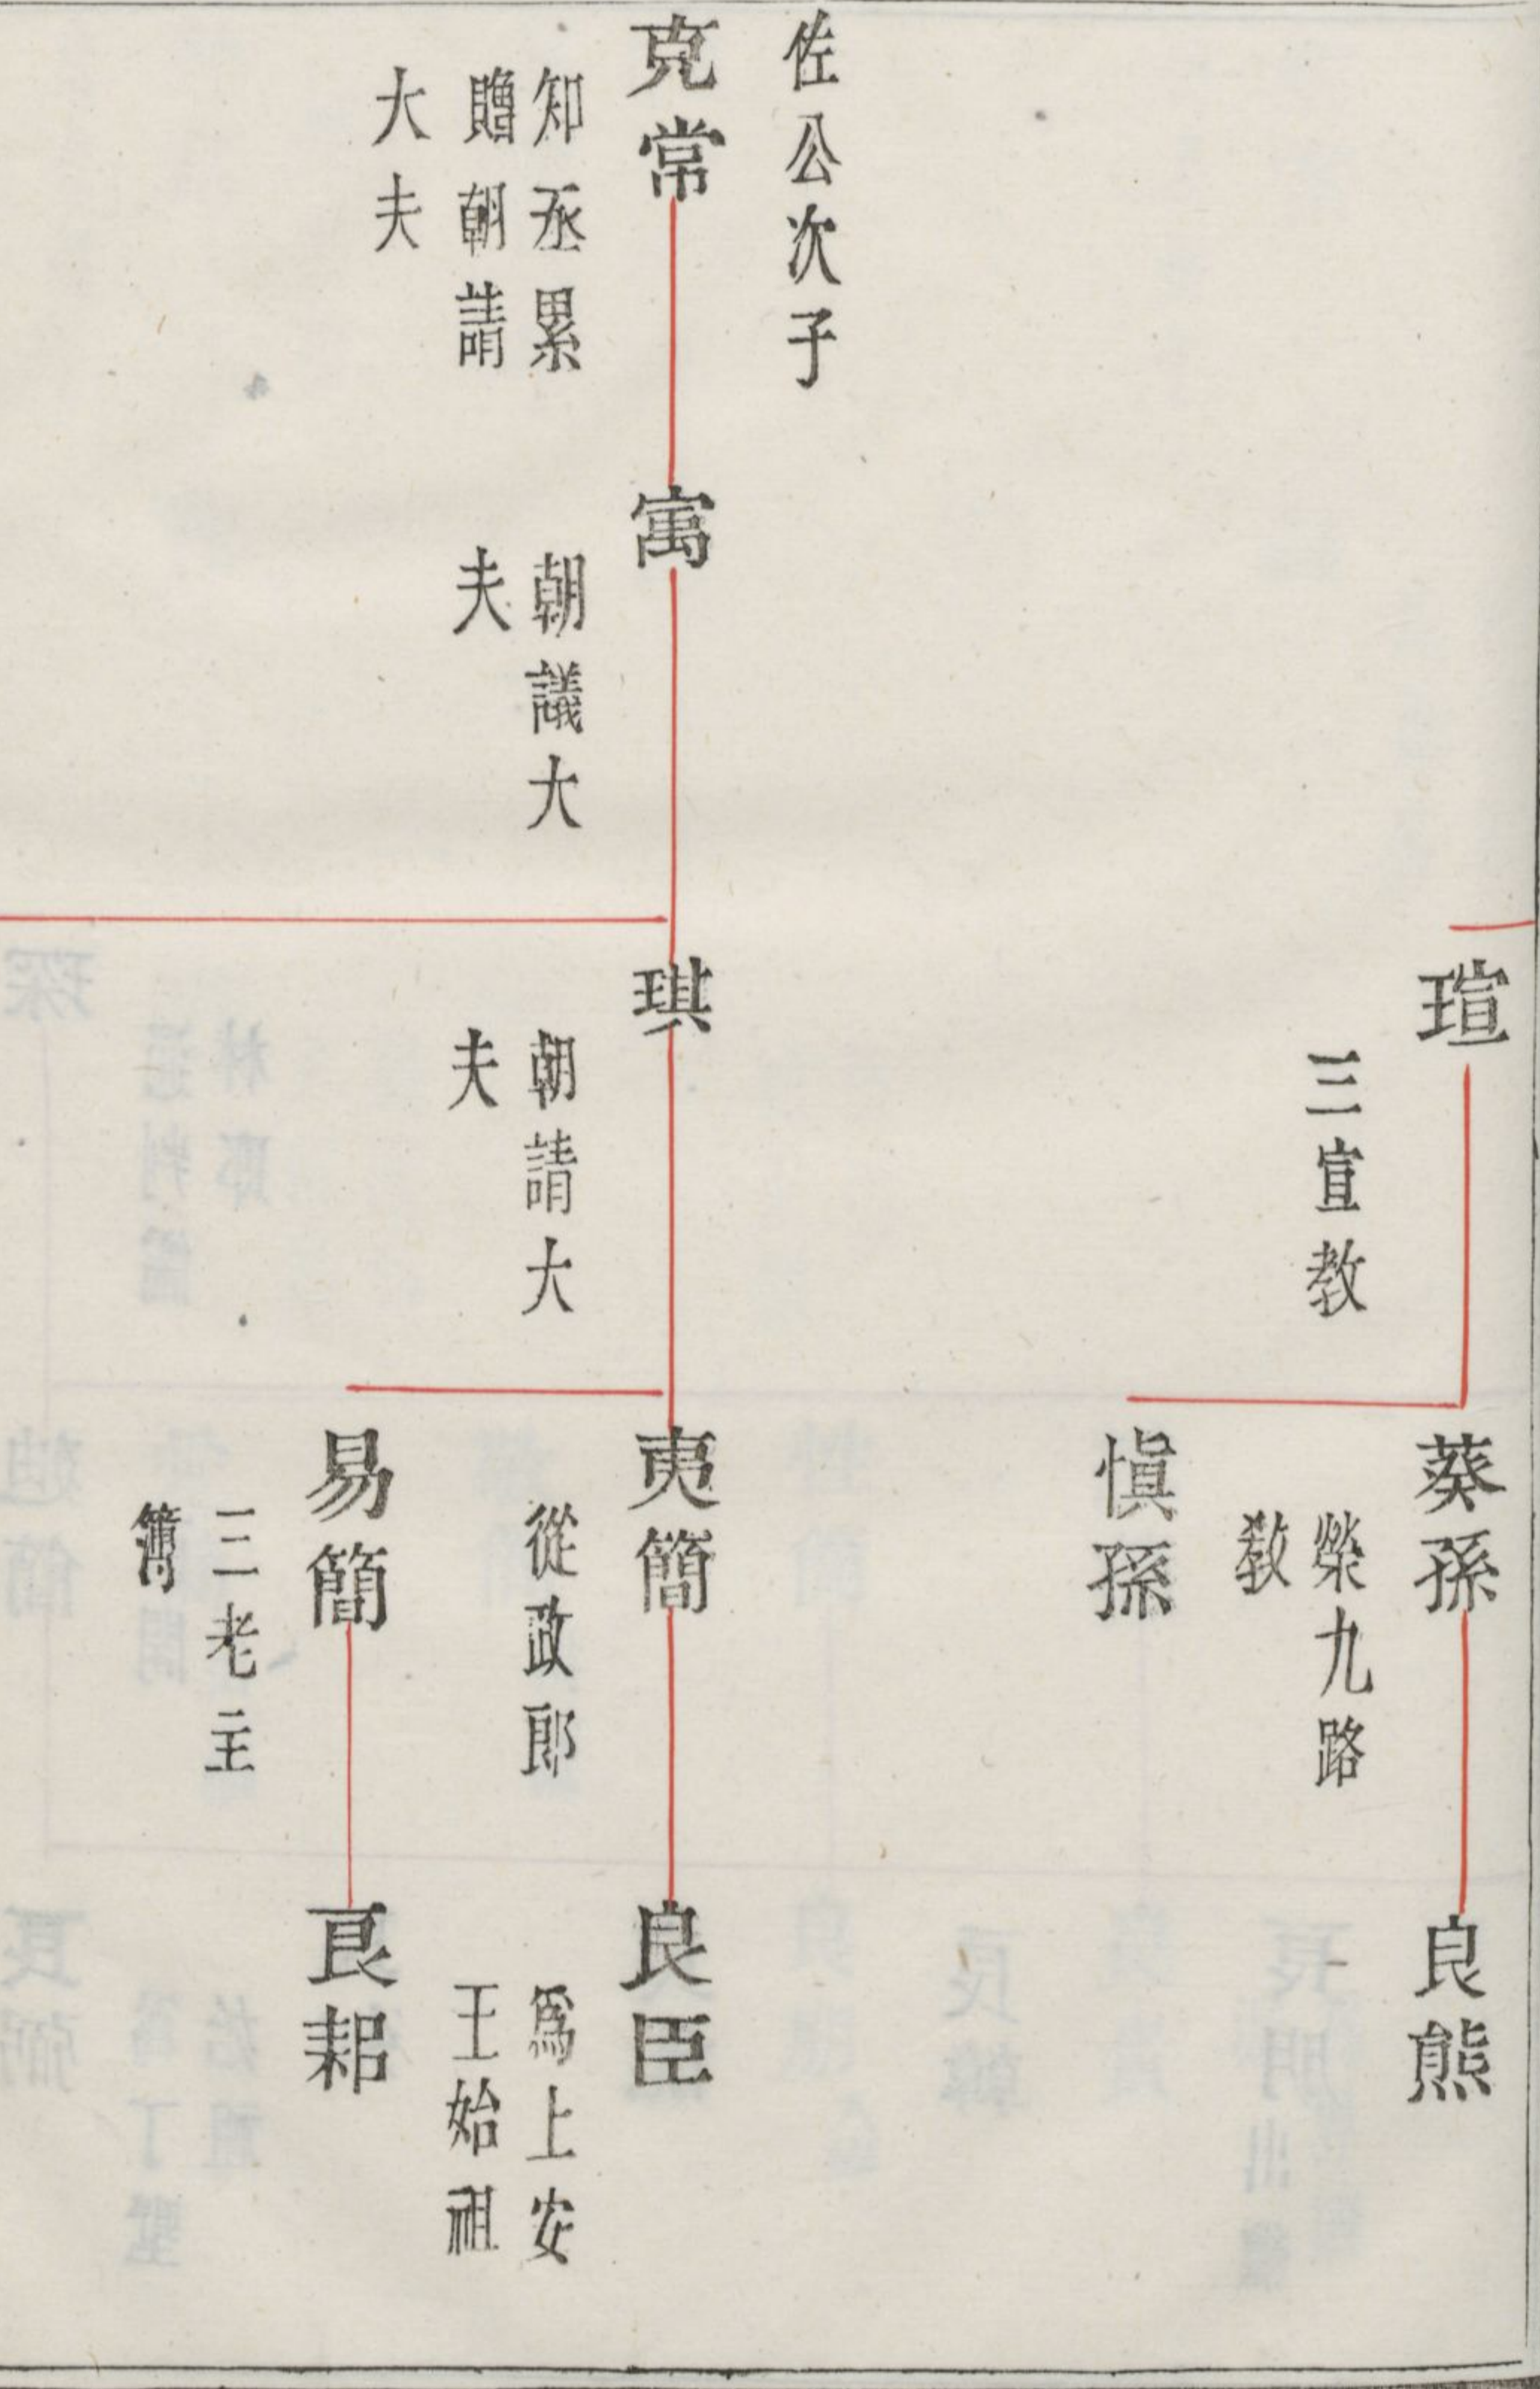 瑄
三宣教
葵孫
榮九路
教
良熊
慎孫
佐公次子
克常
知丞累
贈朝請
大夫
寓
朝議大
夫
琪
朝請大
夫
夷簡
從政郎
良臣
爲上安
王始祖
易簡
三老主
簿
良耜